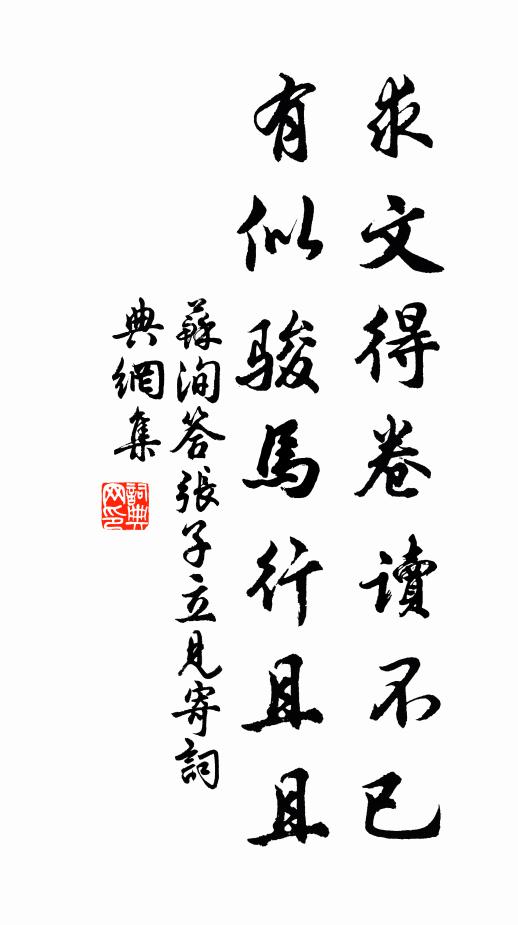 求文得卷讀不已
有似駿馬行且且
蘇洵答張子立見寄詞
典網集
詞典网印